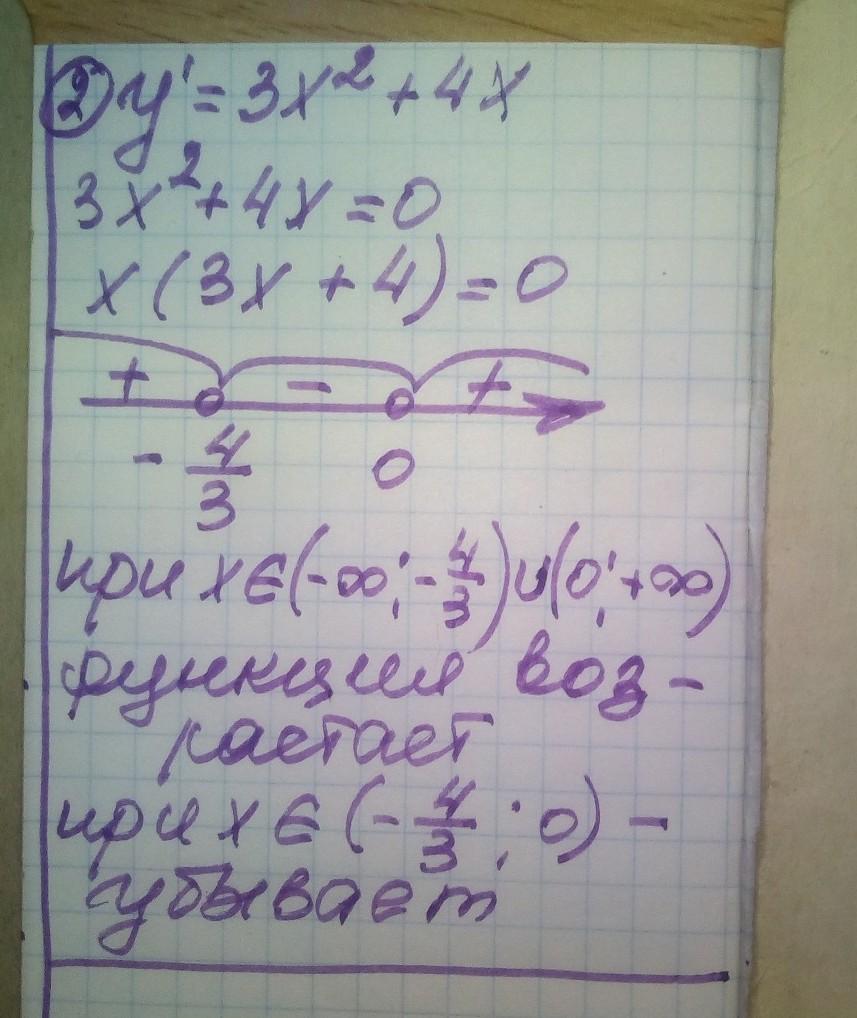 ② y' = 3x² + 4x
3x² + 4x = 0
x(3x + 4) = 0
+ - +
- 4/3 0
при x ∈ (-∞; -4/3) ∪ (0; +∞)
функция воз-
растает
при x ∈ (-4/3; 0) -
убывает